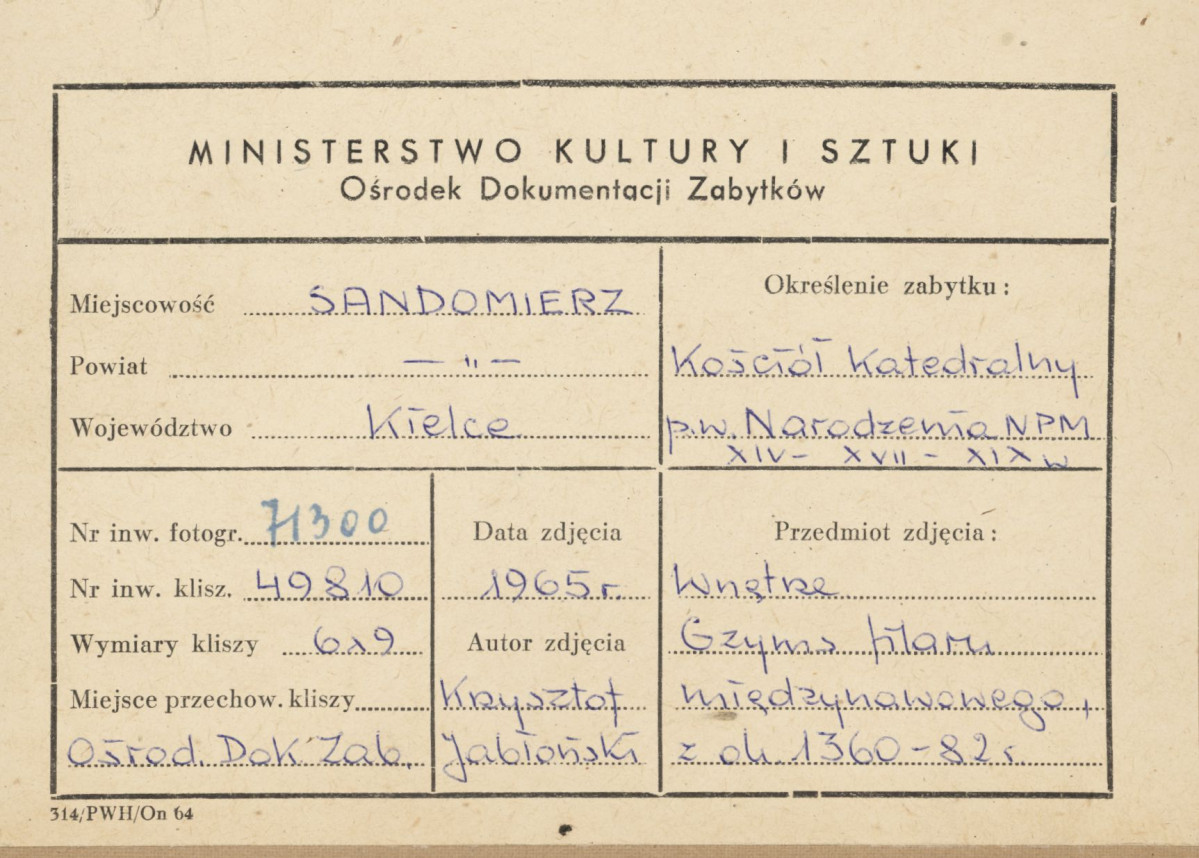 MINISTERSTWO KULTURY I SZTUKI
Ośrodek Dokumentacji Zabytków
Miejscowość SANDOMIERZ
Powiat — " —
Województwo Kielce
Określenie zabytku:
Kościół Katedralny
p.w. Narodzenia NPM
XIV - XVII - XIX w
Nr inw. fotogr. 71300
Nr inw. klisz. 49810
Wymiary kliszy 6x9
Miejsce przechow. kliszy
Ośrod. Dok Zab.
Data zdjęcia
1965 r.
Autor zdjęcia
Krzysztof
Jabłoński
Przedmiot zdjęcia:
Wnętrze
Gzyms filaru
międzynawowego,
z ok. 1360-82 r
314/PWH/On 64